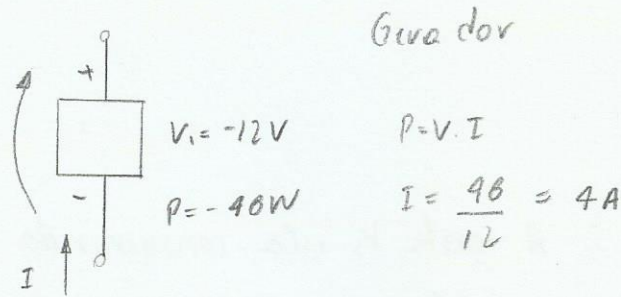 Gerador
+
V₁ = -12V
P = V. I
-
P = -48W
I = 48/12 = 4A
I